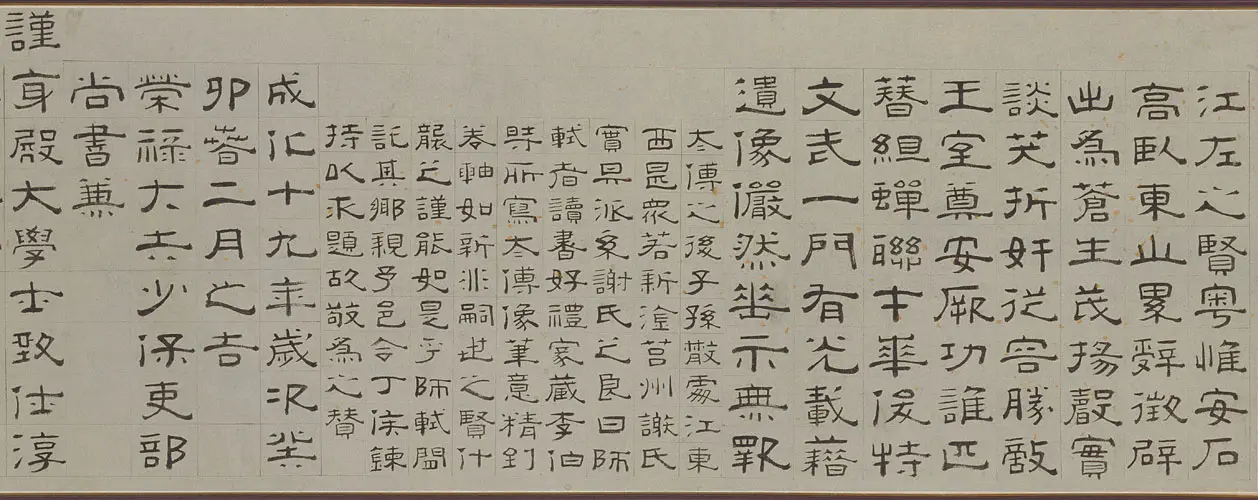 江左之賢粵惟安石
高臥東山累辭徵辟
出為蒼生茂揚聲實
談笑折奸從容勝敵
王室尊安厥功誰匹
簪組蟬聯才華俊特
文武一門有光載藉
遺像儼然垂示無斁
太傅之後子孫散處江東
西昰衆若新淦莒州謝氏
實其派系謝氏之良曰師
軾者讀書好禮家藏李伯
時所寫太傅像筆意精到
卷軸如新非嗣世之賢什
襲之謹能如是乎師軾聞
託其鄉親予邑令丁侯鍊
持以求題故敬為之贊
成化十九年歲次癸
卯春二月之吉
榮祿大夫少保吏部
尚書兼
謹身殿大學士致仕淳